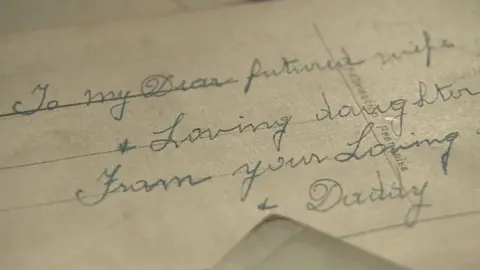 To my Dear future wife
& Loving daughter
From your Loving
& Daddy